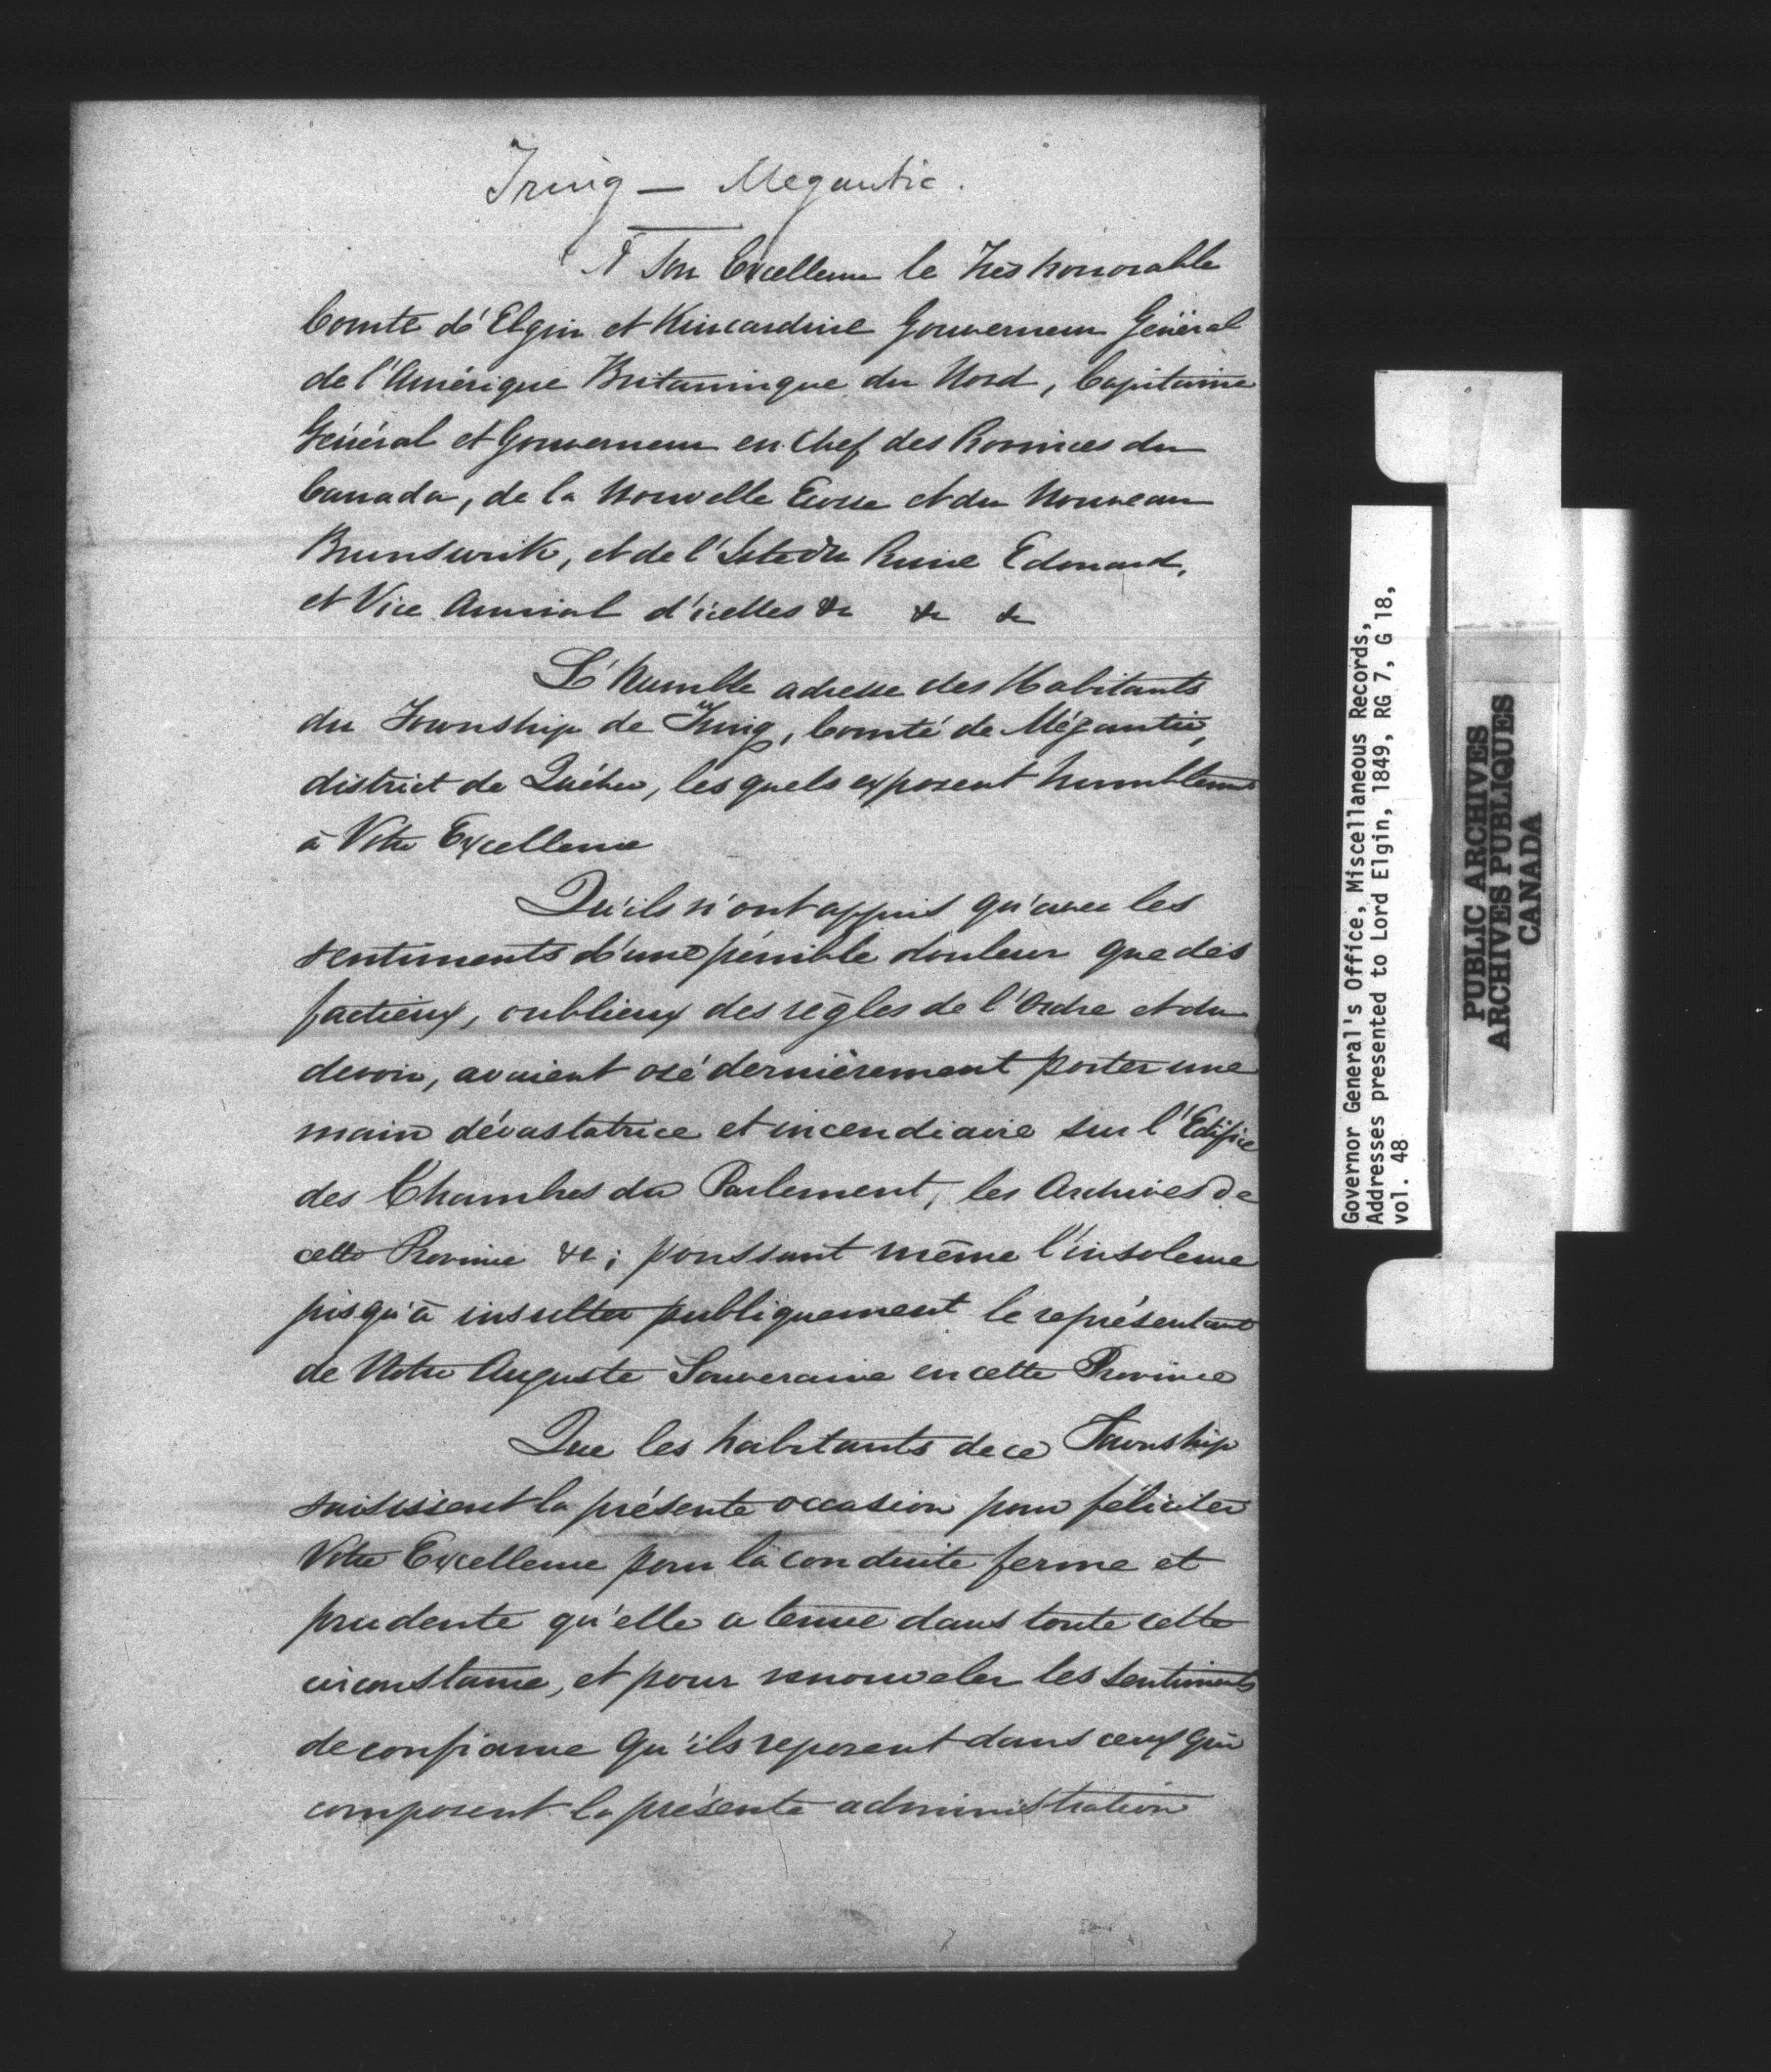 Tring — Megantic.
A Son Excellence le Très honorable
Comte d'Elgin et Kincardine Gouverneur Général
de l'Amérique Britannique du Nord, Capitaine
Général et Gouverneur en Chef des Provinces du
Canada, de la Nouvelle Ecosse et du Nouveau
Brunswik, et de l'Isle du Prince Edouard,
et Vice Amiral d'icelles &c &c &c
L'humble adresse des Habitants
du Township de Tring, Comté de Mégantic,
district de Québec, les quels exposent humblement
à Votre Excellence
Qu'ils n'ont appris qu'avec les
sentiments d'une pénible douleur que des
factieux, oublieux des règles de l'Ordre et du
devoir, avaient osé dernièrement porter une
main dévastatrice et incendiaire sur l'Edifice
des Chambres du Parlement, les Archives de
cette Province &c; poussant même l'insolence
jusqu'à insulter publiquement le représentant
de Notre Auguste Souveraine en cette Province
Que les habitants de ce Township
saisissent la présente occasion pour féliciter
Votre Excellence pour la conduite ferme et
prudente qu'elle a tenue dans toute cette
circonstance, et pour renouveler les sentiments
de confiance qu'ils reposent dans ceux qui
composent la présente administration
Governor General's Office, Miscellaneous Records,
Addresses presented to Lord Elgin, 1849, RG 7, G 18,
vol. 48
PUBLIC ARCHIVES
ARCHIVES PUBLIQUES
CANADA